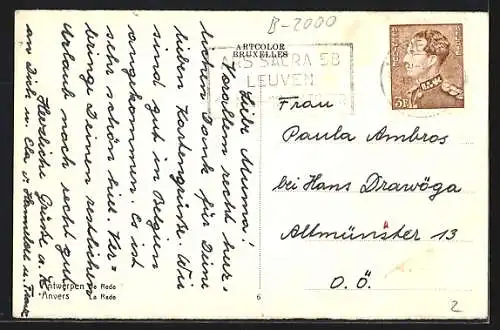 B-2000
ARTCOLOR
BRUXELLES
ARS SACRA 58
LEUVEN
Liebe Mumma!
Vor allem recht herz-
lichen Dank für Deine
lieben Kartengrüße. Wir
sind gut in Belgien
angekommen. Es ist
sehr schön hier. Ver-
bringe Deinen restlichen
Urlaub noch recht gut
Herzliche Grüße a. H.
an Dich u. Cla v. Hannilore u. Franz
Frau
Paula Ambros
bei Hans Drawöga
Altmünster 13
O.Ö.
Antwerpen De Rede
Anvers La Rade
6
2